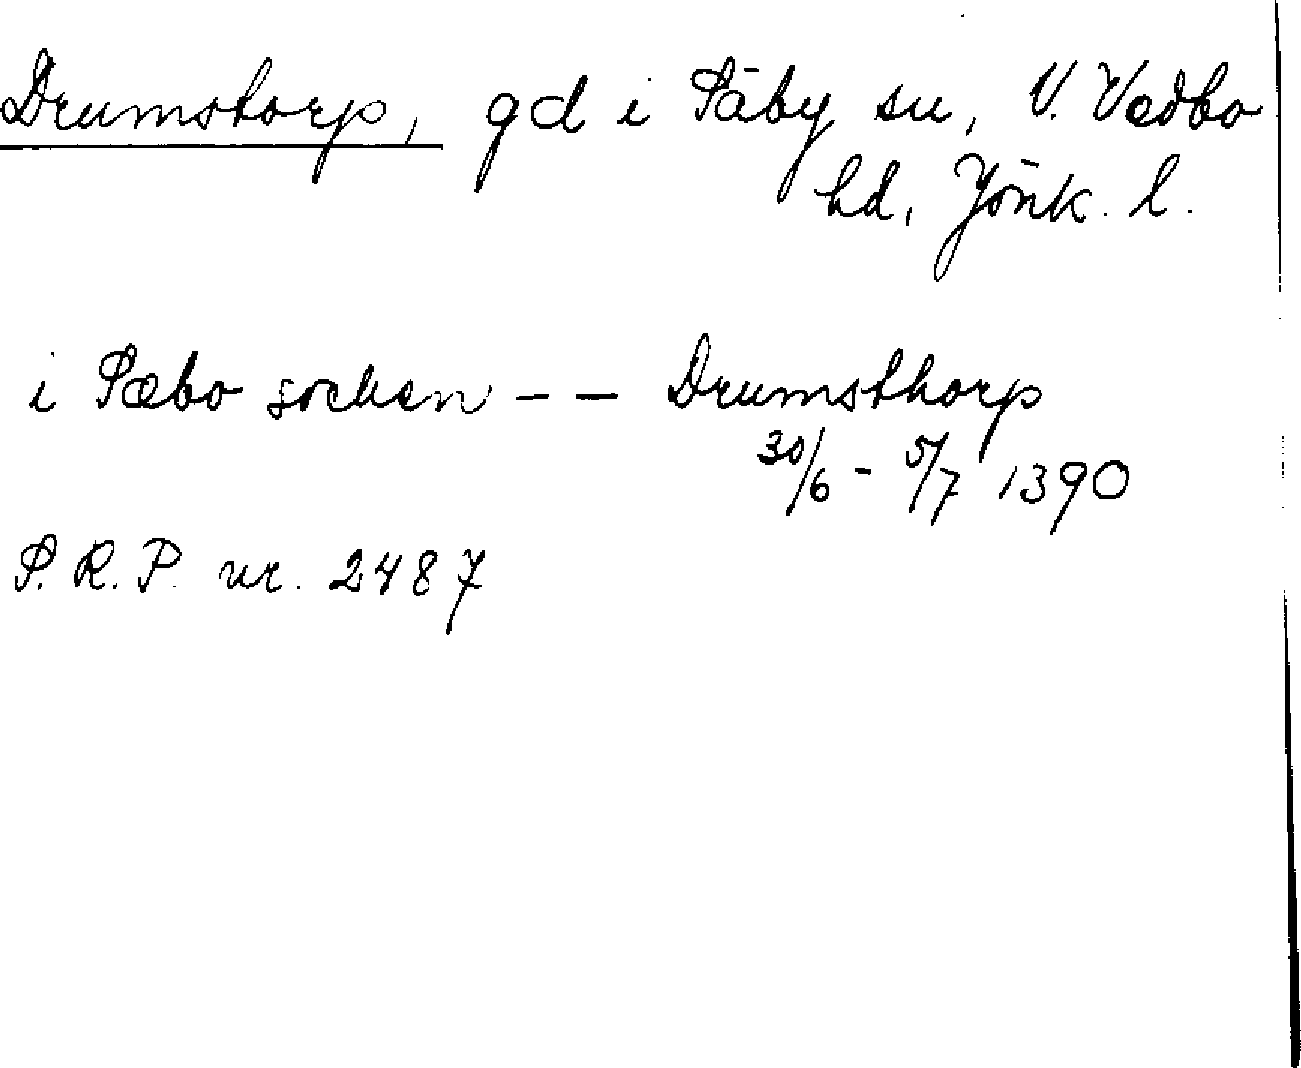 Drumstorp, gd i Säby sn, V. Vedbo
hd, Jönk. l.
i Sæbo socken - - Drumsthorp
30/6 - 5/7 1390
S.R.P. nr. 2487